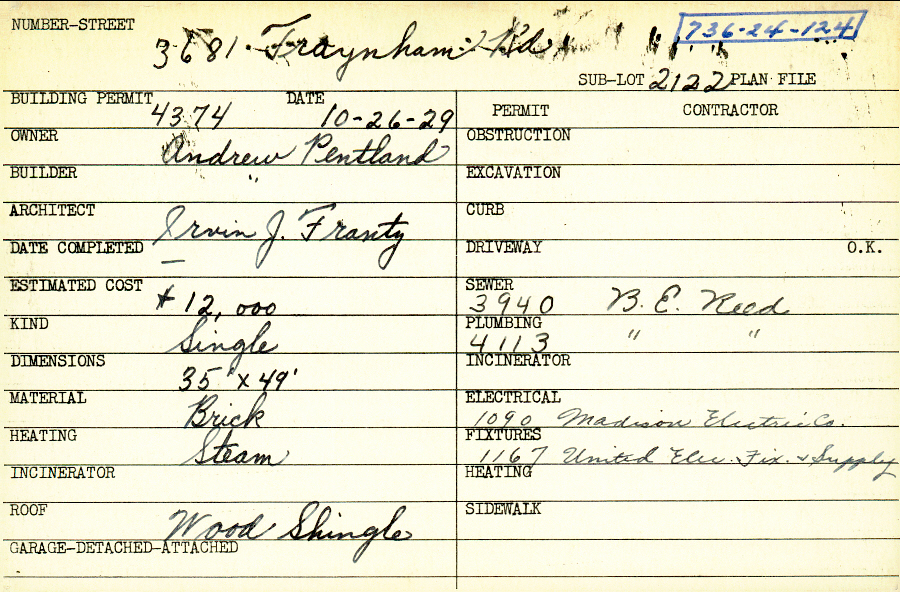 NUMBER-STREET
3681 Traynham Rd 736-24-124
SUB-LOT 2122 PLAN FILE
BUILDING PERMIT 4374 DATE 10-26-29
OWNER Andrew Pentland
BUILDER "
ARCHITECT Irvin J. Franty
DATE COMPLETED —
ESTIMATED COST $12,000
KIND Single
DIMENSIONS 35' x 49'
MATERIAL Brick
HEATING Steam
INCINERATOR
ROOF Wood Shingle
GARAGE-DETACHED-ATTACHED
PERMIT CONTRACTOR
OBSTRUCTION
EXCAVATION
CURB
DRIVEWAY O.K.
SEWER 3940 B. E. Reed
PLUMBING 4113 " "
INCINERATOR
ELECTRICAL 1090 Madison Electric Co.
FIXTURES 1167 United Elec. Fix. & Supply
HEATING
SIDEWALK